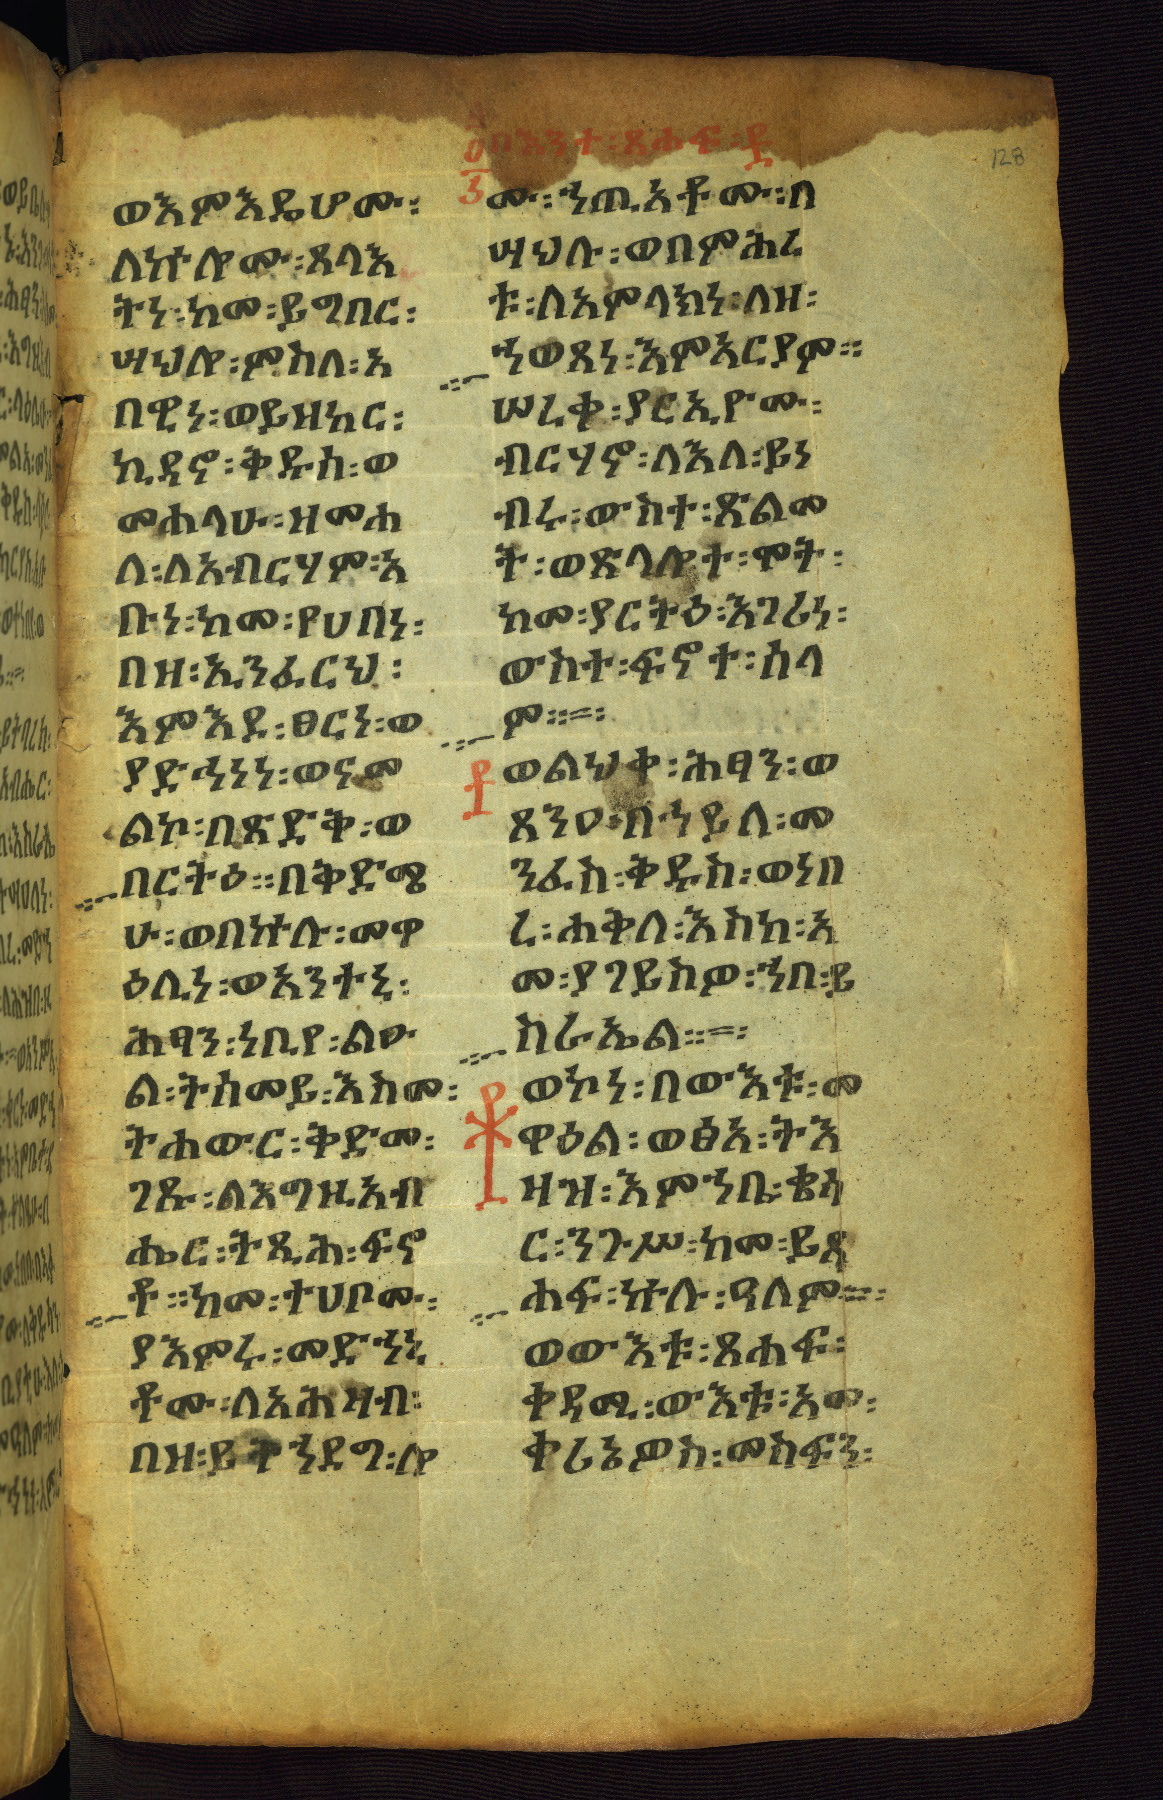 በእንተ፡ጸሐፍ፡፬
128
ወእምእዴሆሙ፡
ለኵሎሙ፡ጸላእ
ትነ፡ከመ፡ይግበር፡
ሣህሎ፡ምስለ፡አ
በዊነ፡ወይዝከር፡
ኪዳኖ፡ቅዱስ፡ወ
መሐላሁ፡ዘመሐ
ለ፡ለአብርሃም፡አ
ቡነ፡ከመ፡የሀበነ፡
በዘ፡ኢንፈርህ፡
እምእደ፡ፀርነ፡ወ
ያድኅነነ፡ወናመ
ልኮ፡በጽድቅ፡ወ
በርትዕ፡፡በቅድሜ
ሁ፡ወበኵሉ፡መዋ
ዕሊነ፡ወአንተኒ፡
ሕፃን፡ነቢየ፡ልዑ
ል፡ትሰመይ፡እስመ፡
ትሐውር፡ቅድመ፡
ገጹ፡ለእግዚአብ
ሔር፡ትጺሕ፡ፍኖ
ቶ፡፡ከመ፡ተሀቦሙ፡
ያእምሩ፡መድኀኒ
ቶሙ፡ለአሕዛብ፡
በዝ፡ይትኀደግ፡ሎ
ሙ፡ኀጢአቶሙ፡በ
ሣህሉ፡ወበምሕረ
ቱ፡ለአምላክነ፡ለዘ፡
ኀወጸነ፡እምአርያም፡፡
ሠረቀ፡ያርኢዮሙ፡
ብርሃኖ፡ለእለ፡ይነ
ብሩ፡ውስተ፡ጽልመ
ት፡ወጽላሎተ፡ሞት፡
ከመ፡ያርትዕ፡እገሪነ፡
ውስተ፡ፍኖተ፡ሰላ
ም፡፡=፡
ወልህቀ፡ሕፃን፡ወ
ጸንዐ፡በኀይለ፡መ
ንፈስ፡ቅዱስ፡ወነበ
ረ፡ሐቅለ፡እስከ፡አ
መ፡ያገይስዎ፡ኀበ፡ይ
ስራኤል፡፡=፡
ወኮነ፡በውእቱ፡መ
ዋዕል፡ወፅአ፡ትእ
ዛዝ፡እምኀቤ፡ቄሳ
ር፡ንጉሥ፡ከመ፡ይጸ
ሐፍ፡ኵሉ፡ዓለም፡፡=፡
ወውእቱ፡ጸሐፍ፡
ቀዳሚ፡ውእቱ፡አመ፡
ቀሬኔዎስ፡መስፍን፡